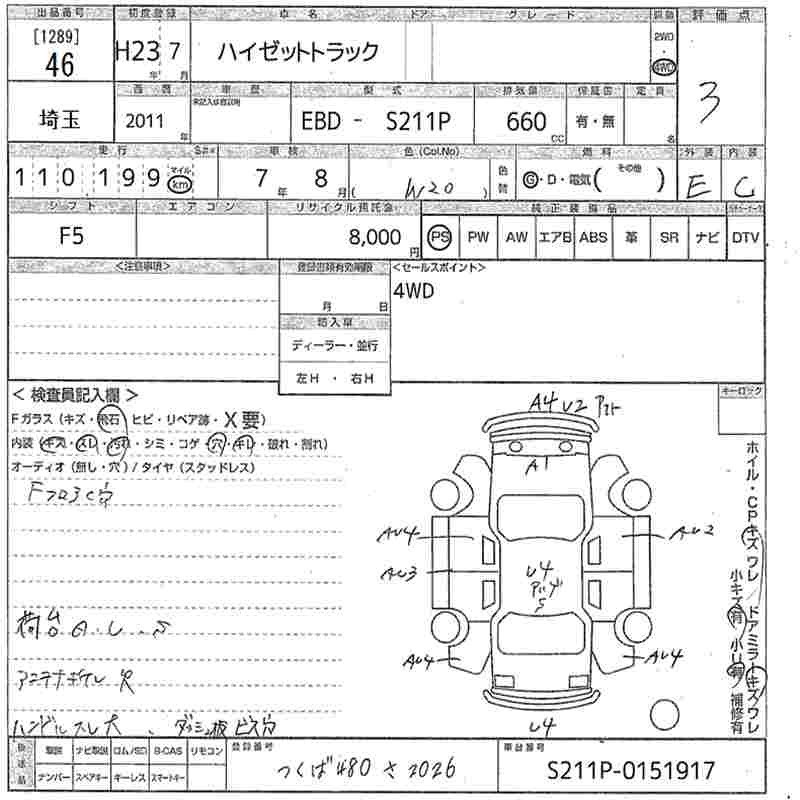 出品番号 初度登録 車名 ドア グレード 駆動 評価点
[1289] 46 H23 7 年 月 ハイゼットトラック 2WD・4WD 3
西暦 車歴 型式 排気量 保証書 定員
埼玉 2011 年 未記入は自家用 EBD - S211P 660 CC 有・無 名
走行 車検 色(Col.No) 燃料 外装 内装
110,199 マイル km 7年 8月 ( W20 ) 色替 G・D・電気( その他 ) E C
シフト エアコン リサイクル預託金 純正装備品
F5 8,000円 PS PW AW エアB ABS 革 SR ナビ DTV
<注意事項> 登録書類有効期限 <セールスポイント>
月 日 4WD
輸入車
ディーラー・並行
左H ・ 右H
< 検査員記入欄 > キーロック
Fガラス(キズ・飛石 ヒビ・リペア跡・X要)
内装 (キズ・スレ・汚れ・シミ・コゲ・穴・キレ・破れ・割れ)
オーディオ(無し・穴)/タイヤ(スタッドレス)
A4 U2
A1
AU4 AU2
AU3 U4
AU4 AU4
U4
ホイル・CPキズ ワレ/ドアミラーキズワレ
小キズ有 小U有/補修有
アンテナ
ハンドルスレ大、ダッシュ板ビス穴
後送品 取説 ナビ取説 ロム/SD B-CAS リモコン 登録番号 車台番号
ナンバー スペアキー キーレス スマートキー つくば480 さ 2026 S211P-0151917